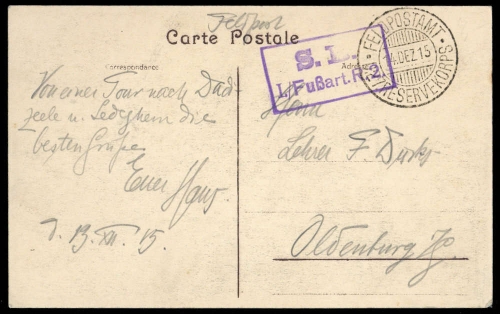 Feldpost
Carte Postale
Correspondance
Adresse
S. L.
I./Fußart. R. 2.
FELDPOSTAMT
DEZ 15
RESERVEKORPS
Von einer Tour nach Dad-
zeele u. Ledeghem die
besten Grüße
Euer Hans
13. XII. 15.
Herrn
Lehrer F.
Oldenburg